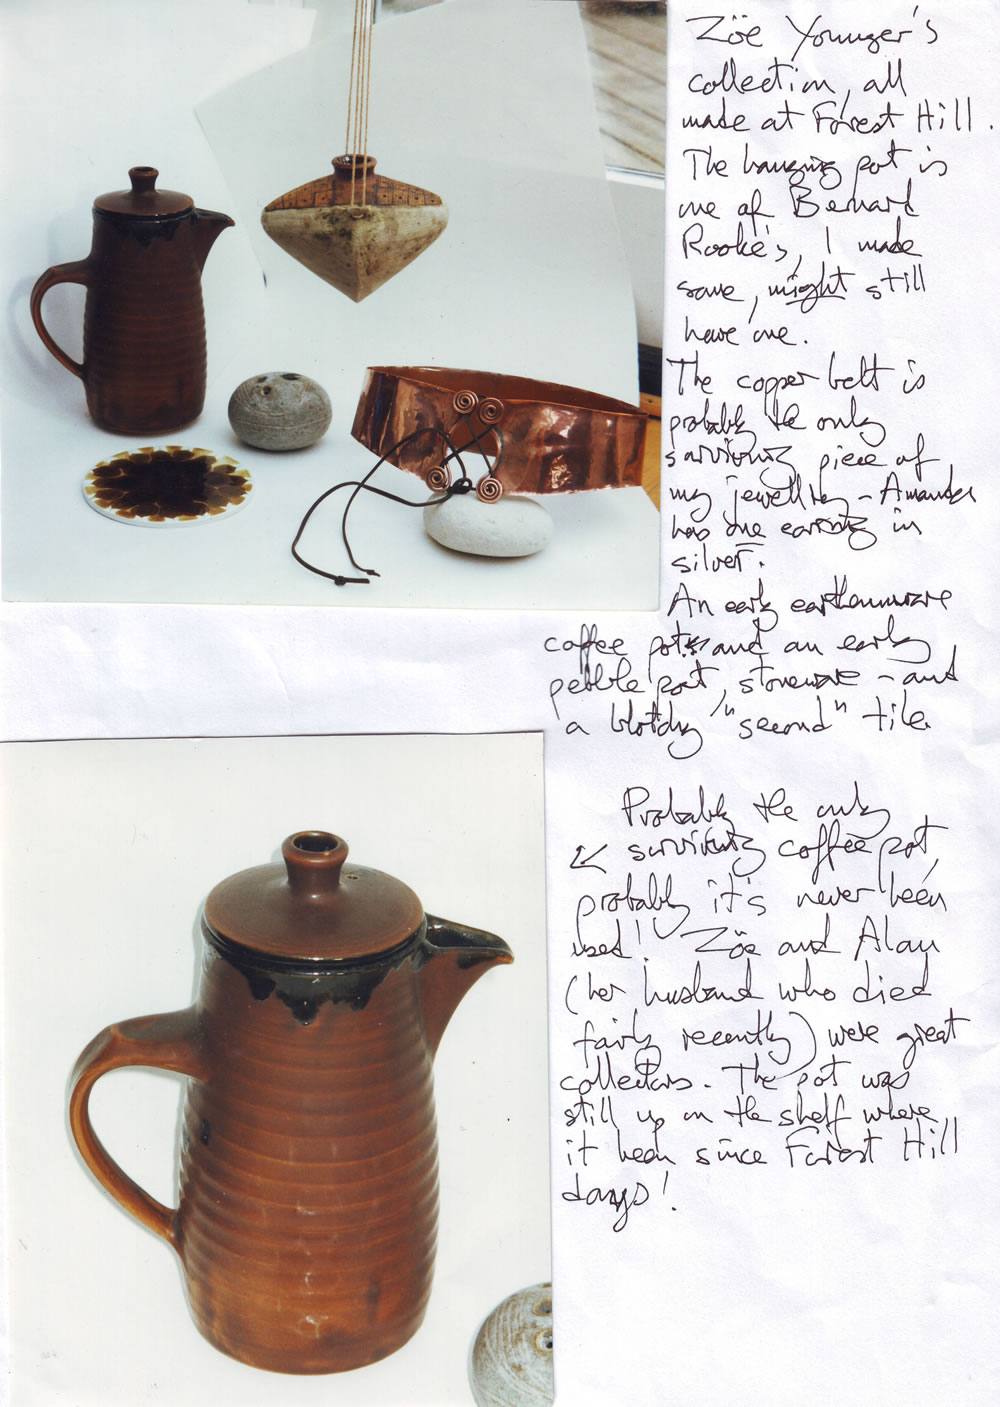 Zöe Younger's
collection, all
made at Forest Hill.
The hanging pot is
one of Bernard
Rooke's, I made
some, might still
have one.
The copper belt is
probably the only
surviving piece of
my jewellry – Amanda
has one earring in
silver.
An early earthenware
coffee pot and an early
pebble pot, stoneware – and
a blotchy "second" tile.
Probably the only
surviving coffee pot,
probably it's never been
used! Zöe and Alan
(her husband who died
fairly recently) were great
collectors. The pot was
still up on the shelf where
it been since Forest Hill
days!